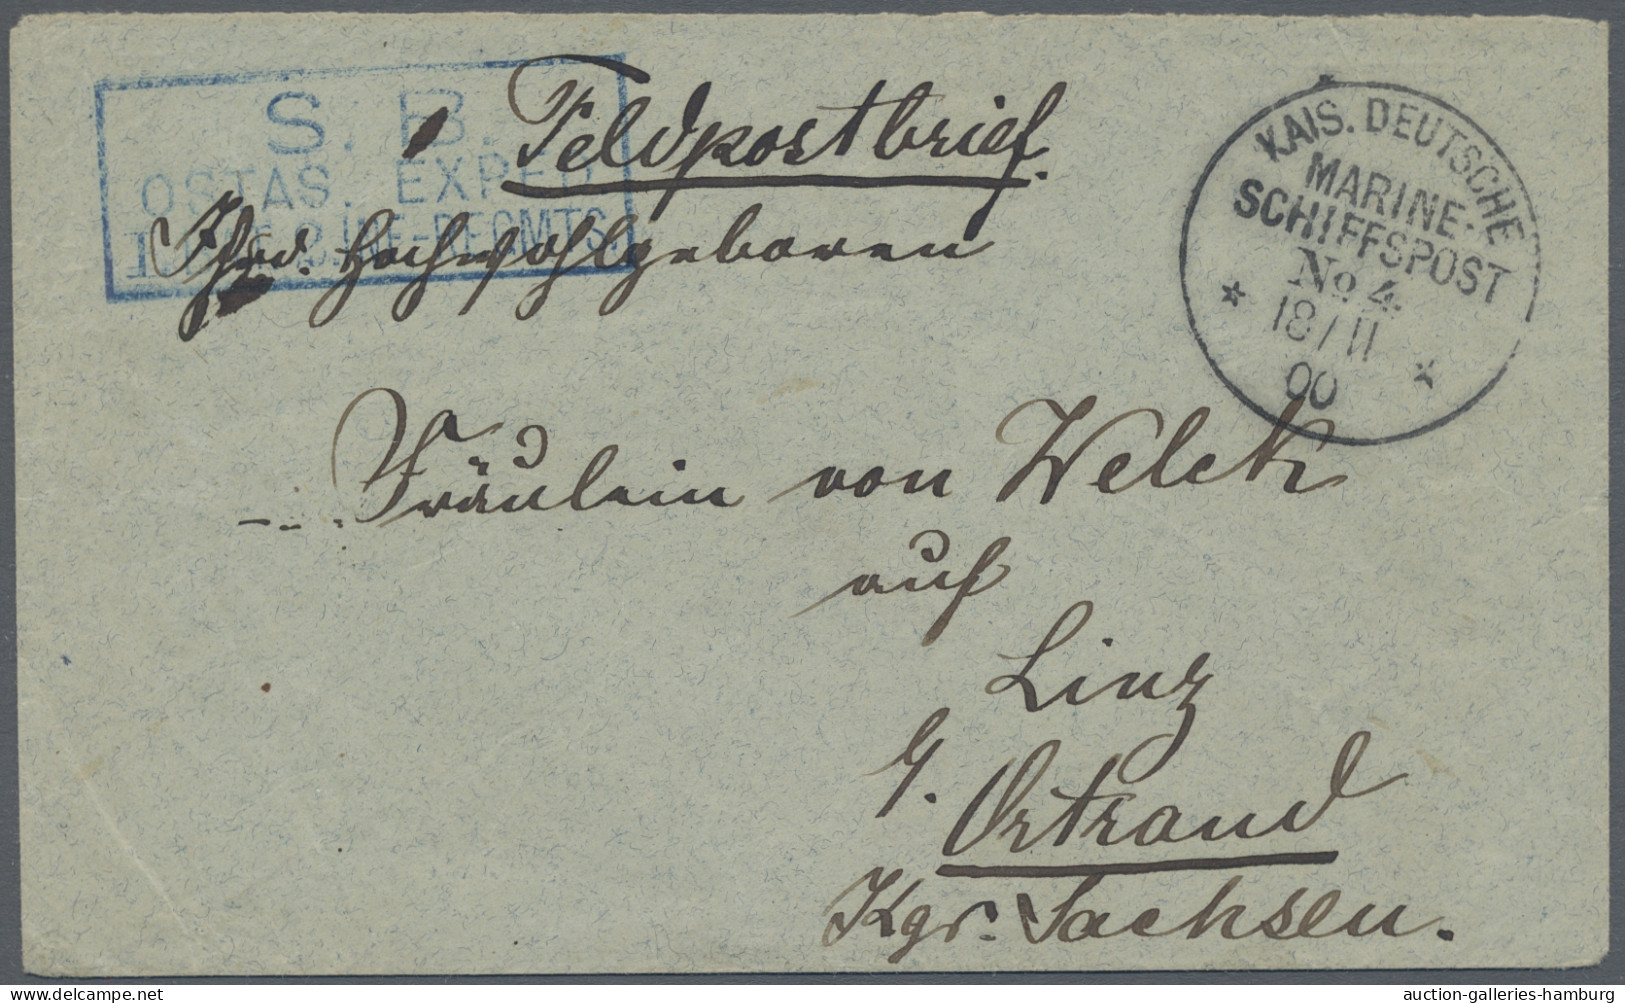 S. B.
OSTAS. EXPED
INE-REGMTS
Feldpostbrief.
Hochwohlgeboren
KAIS. DEUTSCHE
MARINE-
SCHIFFSPOST
No 4.
18/11
00
Fräulein von Welck
auf
Linz
b.
Ortrand
Kgr. Sachsen.
auction-galleries-hamburg